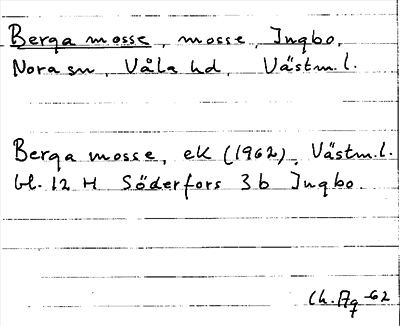 Berga mosse, mosse, Ingbo,
Nora sn, Våla hd, Västm.l.
Berga mosse, ek (1962), Västm.l.
bl. 12 H Söderfors 3b Ingbo.
Ch. Ag -62